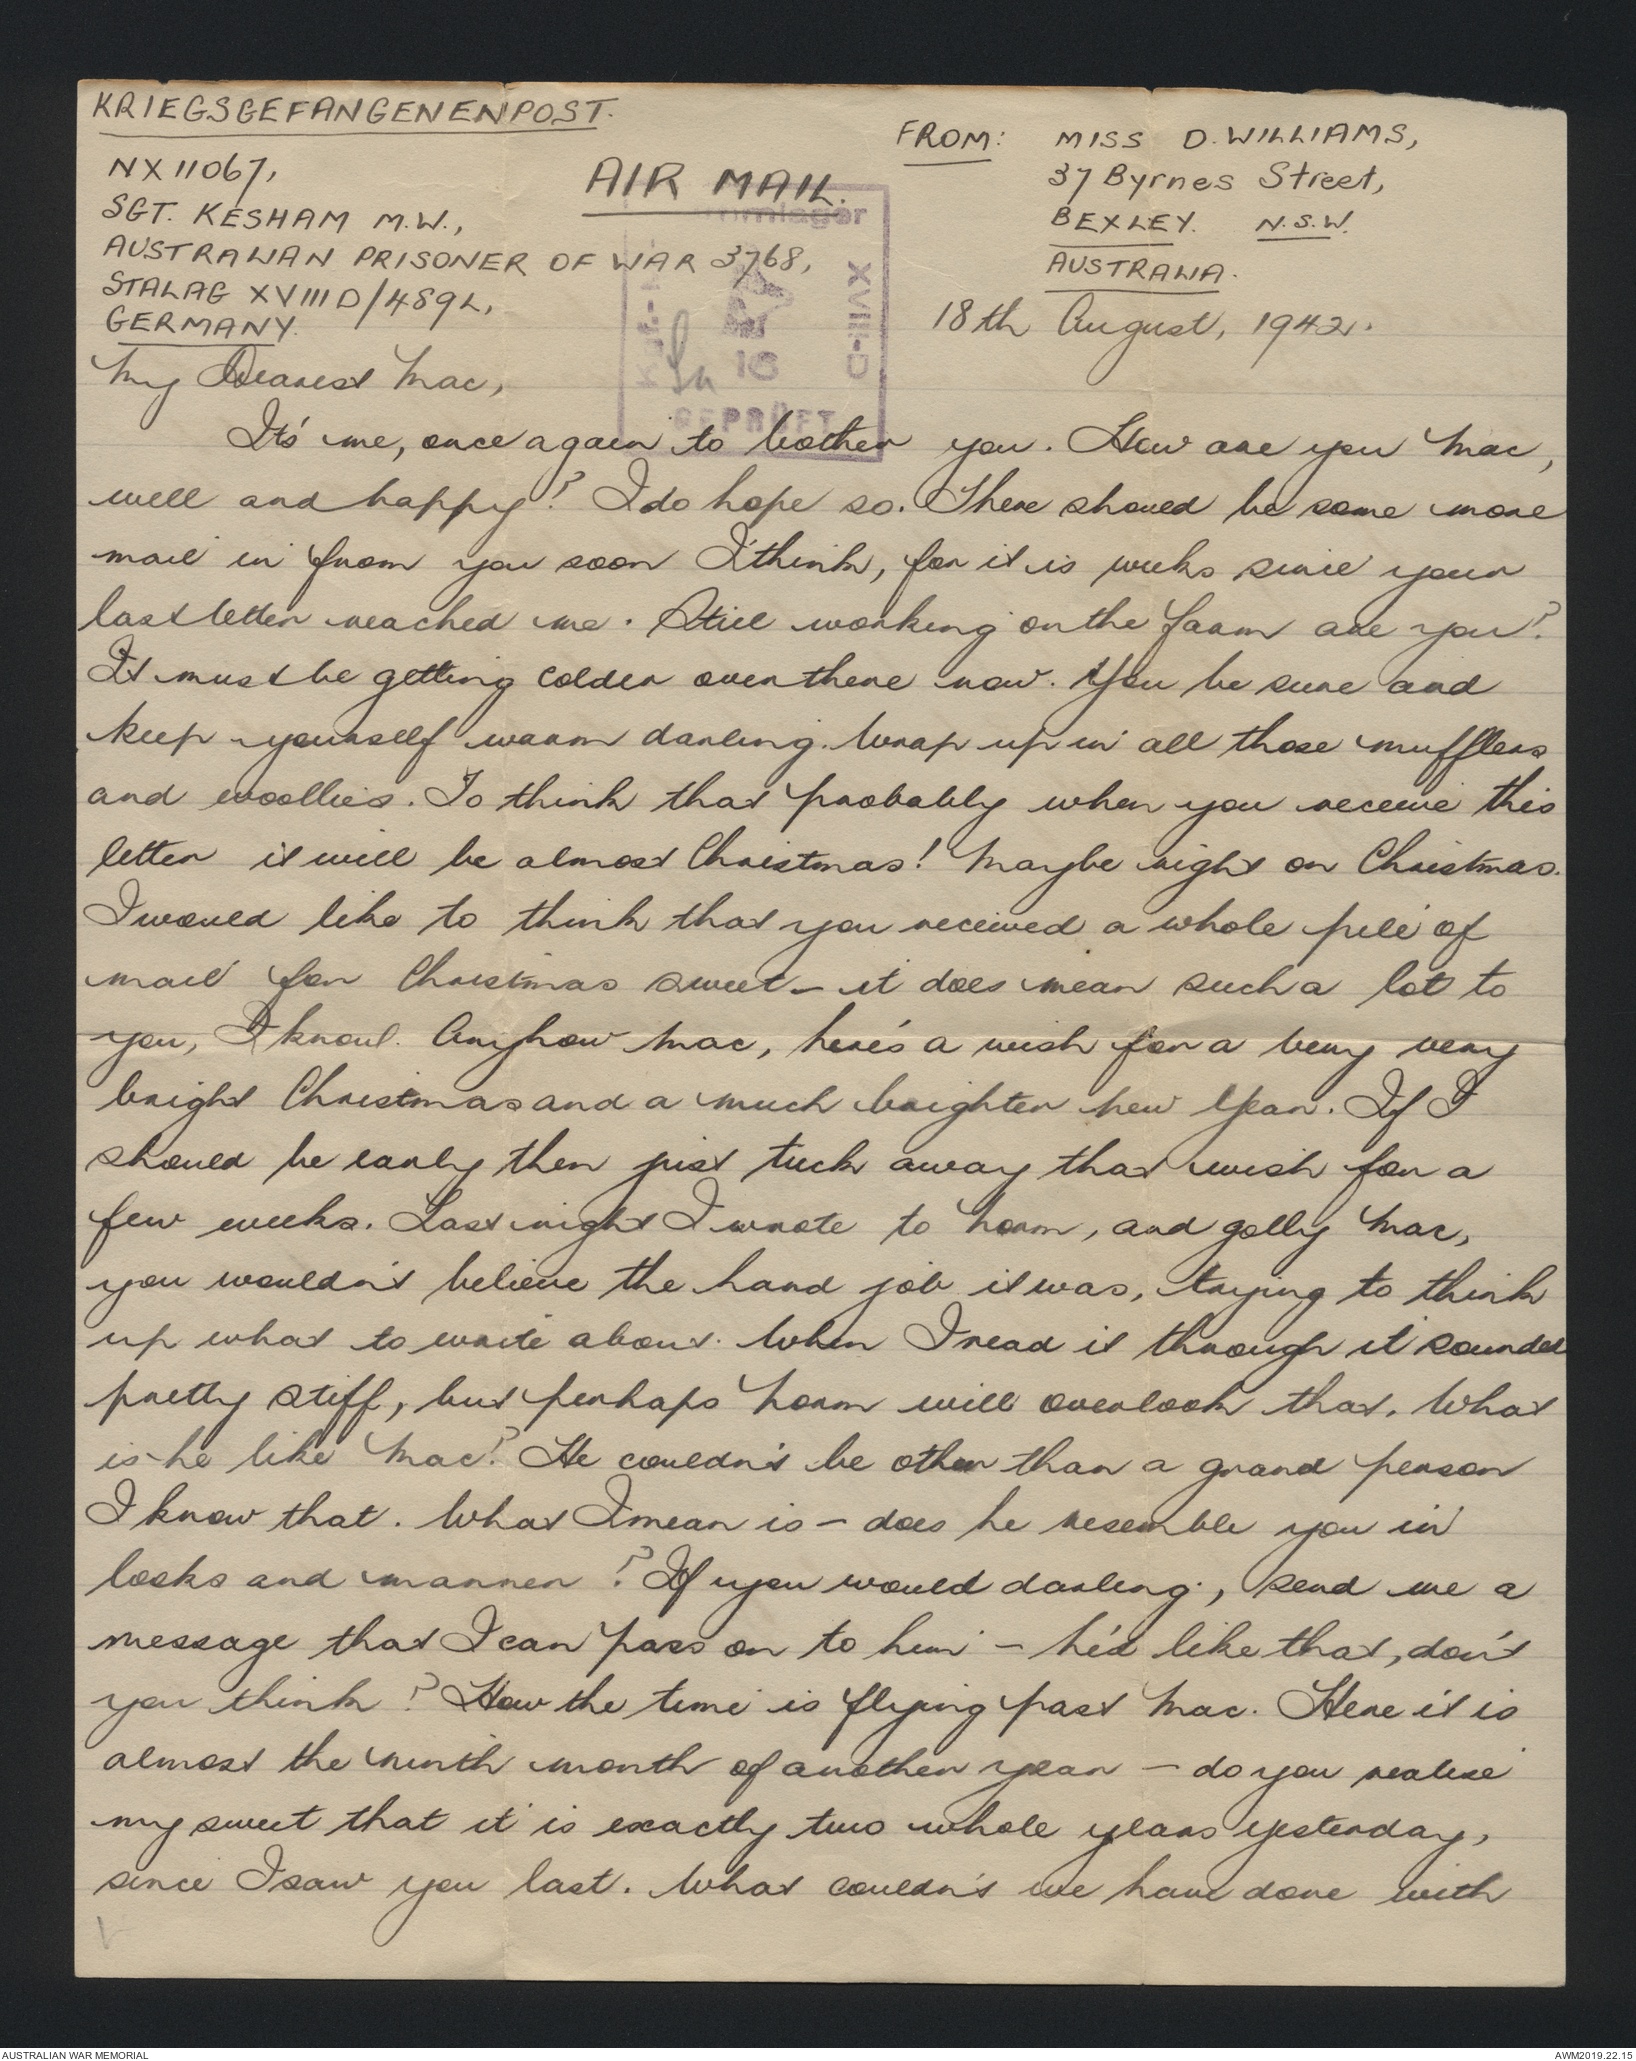 KRIEGSGEFANGENENPOST.
FROM: MISS D. WILLIAMS,
NX 11067,
AIR MAIL.
37 Byrnes Street,
SGT. KESHAM M.W.,
BEXLEY. N.S.W.
AUSTRALIAN PRISONER OF WAR 3768,
AUSTRALIA.
STALAG XVIIID/489L,
GERMANY.
18th August, 1942.
XVIII-D
16
GEPRÜFT
My Dearest Mac,
It's me, once again to bother you. How are you Mac,
well and happy? I do hope so. There should be some more
mail in from you soon I think, for it is weeks since your
last letter reached me. Still working on the farm are you?
It must be getting colder over there now. You be sure and
keep yourself warm darling. Wrap up in all those mufflers
and woollies. To think that probably when you receive this
letter it will be almost Christmas! Maybe right on Christmas.
I would like to think that you received a whole pile of
mail for Christmas sweet - it does mean such a lot to
you, I know. Anyhow Mac, here's a wish for a very very
bright Christmas and a much brighter New Year. If I
should be early then just tuck away that wish for a
few weeks. Last night I wrote to Norm, and golly Mac,
you wouldn't believe the hard job it was, trying to think
up what to write about. When I read it through it sounded
pretty stiff, but perhaps Norm will overlook that. What
is he like Mac? He couldn't be other than a grand person
I know that. What I mean is - does he resemble you in
looks and manner? If you would darling, send me a
message that I can pass on to him - he'd like that, don't
you think? How the time is flying past Mac. Here it is
almost the ninth month of another year - do you realise
my sweet that it is exactly two whole years yesterday,
since I saw you last. What couldn't we have done with
AUSTRALIAN WAR MEMORIAL
AWM2019.22.15